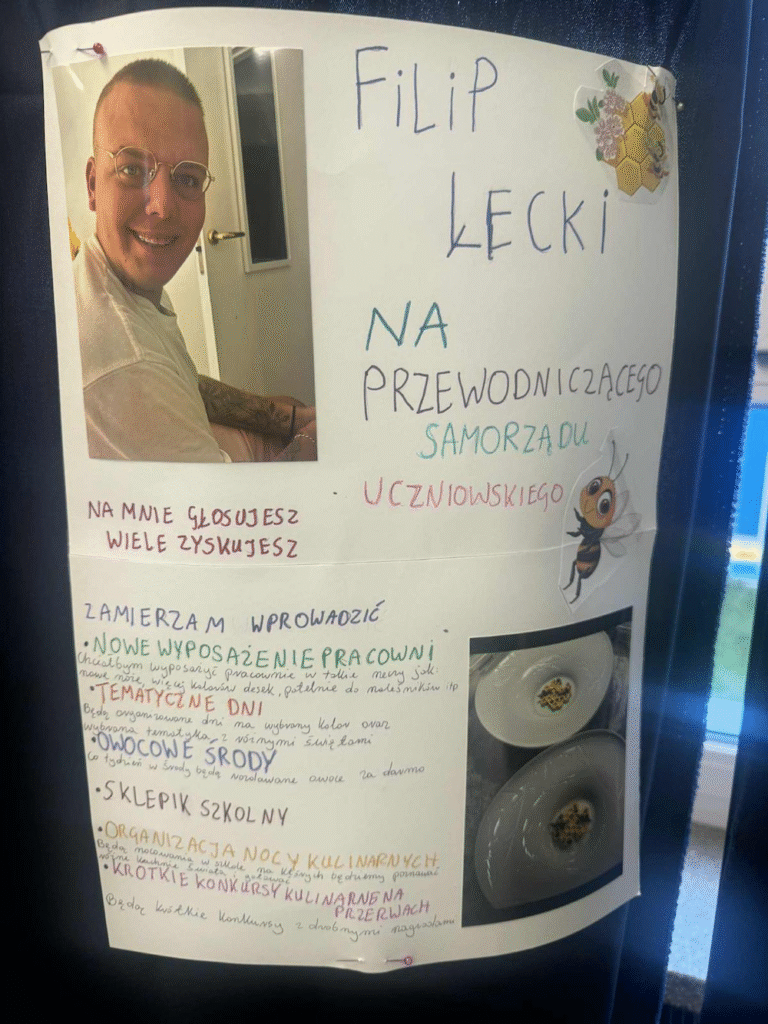 FiLiP
ŁECKi
NA
PRZEWODNICZĄCEGO
SAMORZĄDU
UCZNIOWSKIEGO
NA MNIE GŁOSUJESZ
WIELE ZYSKUJESZ
ZAMIERZAM WPROWADZIĆ
• NOWE WYPOSAŻENIE PRACOWNI
Chciałbym wyposażyć pracownie w takie rzeczy jak:
nowe noże, więcej kolorów desek, patelnie do naleśników itp
• TEMATYCZNE DNI
Będą organizowane dni na wybrany kolor oraz
wybrana tematyka z różnymi świętami
• OWOCOWE ŚRODY
Co tydzień w środy będą rozdawane owoce za darmo
• SKLEPIK SZKOLNY
• ORGANIZACJA NOCY KULINARNYCH
Będą nocowania w szkole na których będziemy poznawać
różne kuchnie świata i gotować
• KRÓTKIE KONKURSY KULINARNE NA
PRZERWACH
Będą krótkie konkursy z drobnymi nagrodami